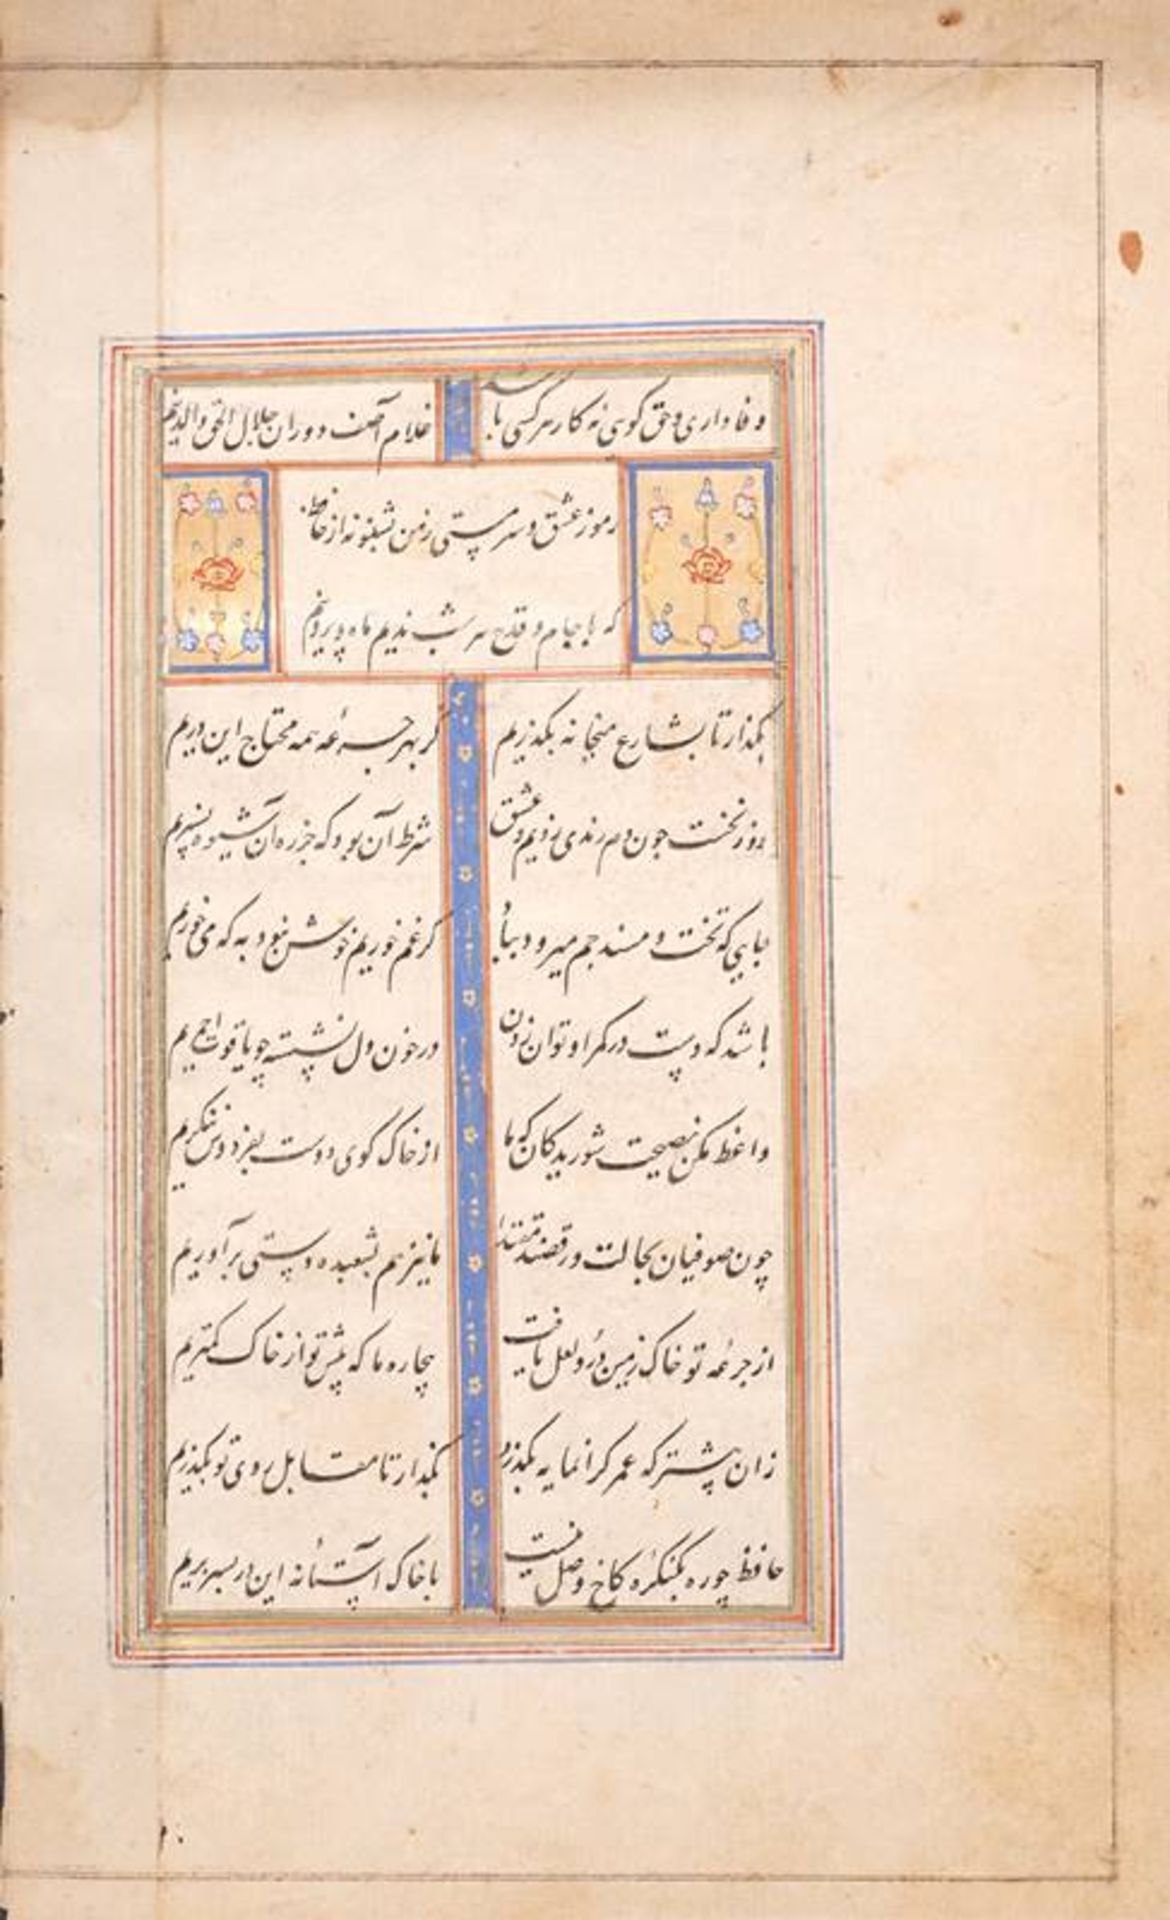 وفاداری و حق کوی نه کار هر کسی باشد غلام آصف دوران جلال الحق والدینم
رموز عشق و سرمستی ز من بشنو نه از حافظ
که با جام و قدح هر شب ندیم ماه و پروینم
بکذار تا بشارع میخانه بکذریم کز بهر جرعهٔ همه محتاج این دریم
روز نخست چون دم رندی زدیم و عشق شرط آن بود که جز ره آن شیوه نسپریم
جایی که تخت و مسند جم میرود بباد کر غم خوریم خوش نبود به که می خوریم
باشد که دست در کمر او توان زدن در خون دل نشسته چو یاقوت احمریم
واعظ مکن نصیحت شوریدکان که ما از خاک کوی دوست بفردوس ننکریم
چون صوفیان بحالت و رقصند مقتدا ما نیز هم بشعبده دستی برآوریم
از جرعهٔ تو خاک زمین در و لعل یافت بیچاره ما که پیش تو از خاک کمتریم
زان پیشتر که عمر کرانمایه بکذرد بکذار تا مقابل روی تو بکذریم
حافظ چو ره بکنکرهٔ کاخ وصل نیست با خاک آستانهٔ این در بسر بریم